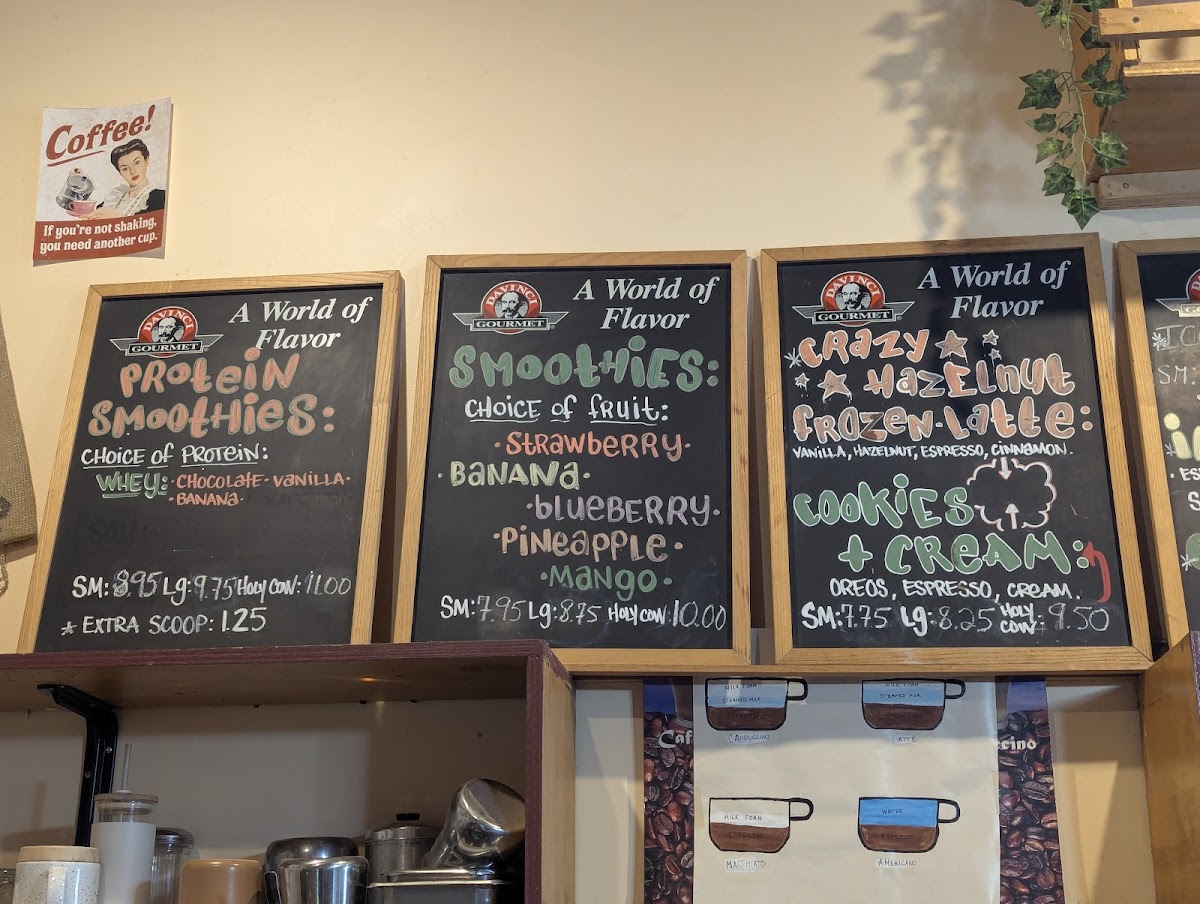 Coffee!
If you're not shaking,
you need another cup.
DAVINCI
GOURMET
A World of
Flavor
PROTEIN
SMOOTHIES:
CHOICE OF PROTEIN:
WHEY: · CHOCOLATE · VANILLA ·
BANANA ·
SM: 8.95 Lg: 9.75 HOLY COW: 11.00
* EXTRA SCOOP: 1.25
DAVINCI
GOURMET
A World of
Flavor
SMOOTHIES:
CHOICE OF FRUIT:
· STRAWBERRY ·
· BANANA ·
· BLUEBERRY ·
· PINEAPPLE ·
· MANGO ·
SM: 7.95 Lg: 8.75 HOLY COW: 10.00
DAVINCI
GOURMET
A World of
Flavor
CRAZY
HAZELNUT
FROZEN · LATTE:
VANILLA, HAZELNUT, ESPRESSO, CINNAMON.
COOKIES
+ CREAM:
OREOS, ESPRESSO, CREAM.
SM: 7.75 Lg: 8.25 HOLY COW: 9.50
SM:
MILK FOAM
STEAMED MILK
CAPPUCCINO
MILK FOAM
STEAMED MILK
LATTE
Caf
ccino
MILK FOAM
ESPRESSO
MACCHIATO
WATER
ESPRESSO
AMERICANO